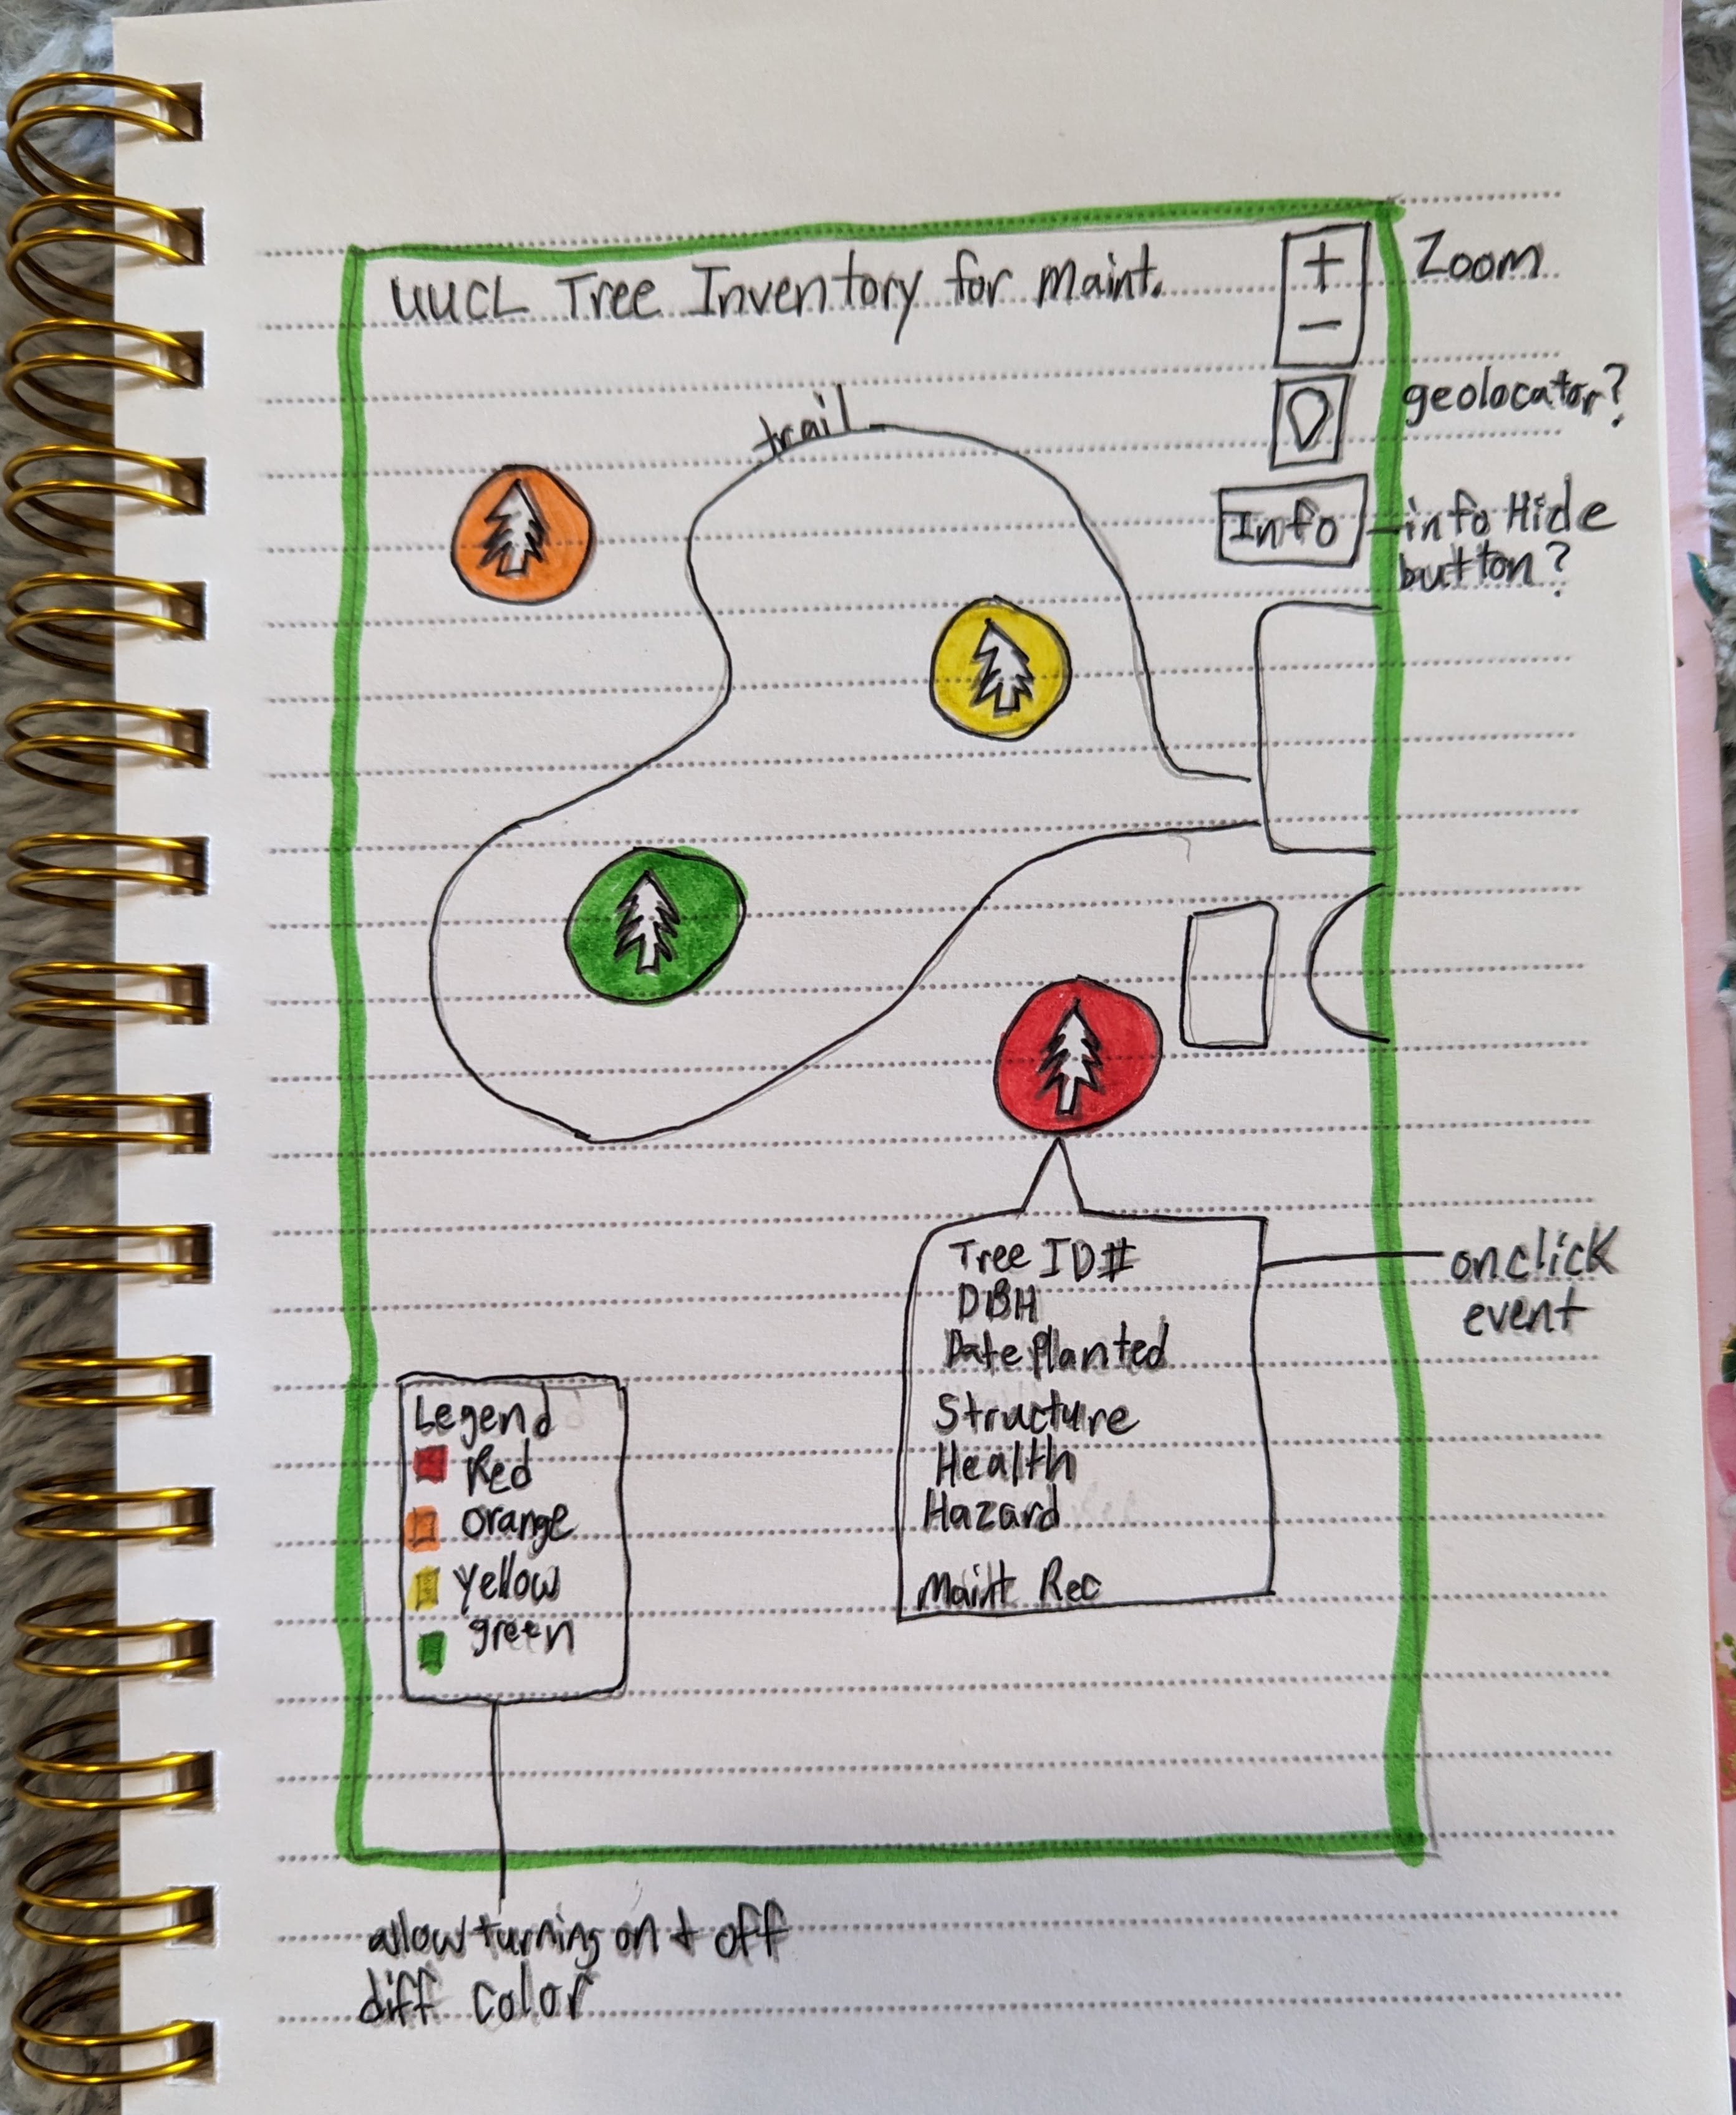 UUCL Tree Inventory for Maint.
+
-
Zoom
geolocator?
trail
Info
info Hide
button?
Tree ID#
DBH
Date Planted
Structure
Health
Hazard
Maint Rec
onclick
event
Legend
Red
orange
yellow
green
allow turning on & off
diff color